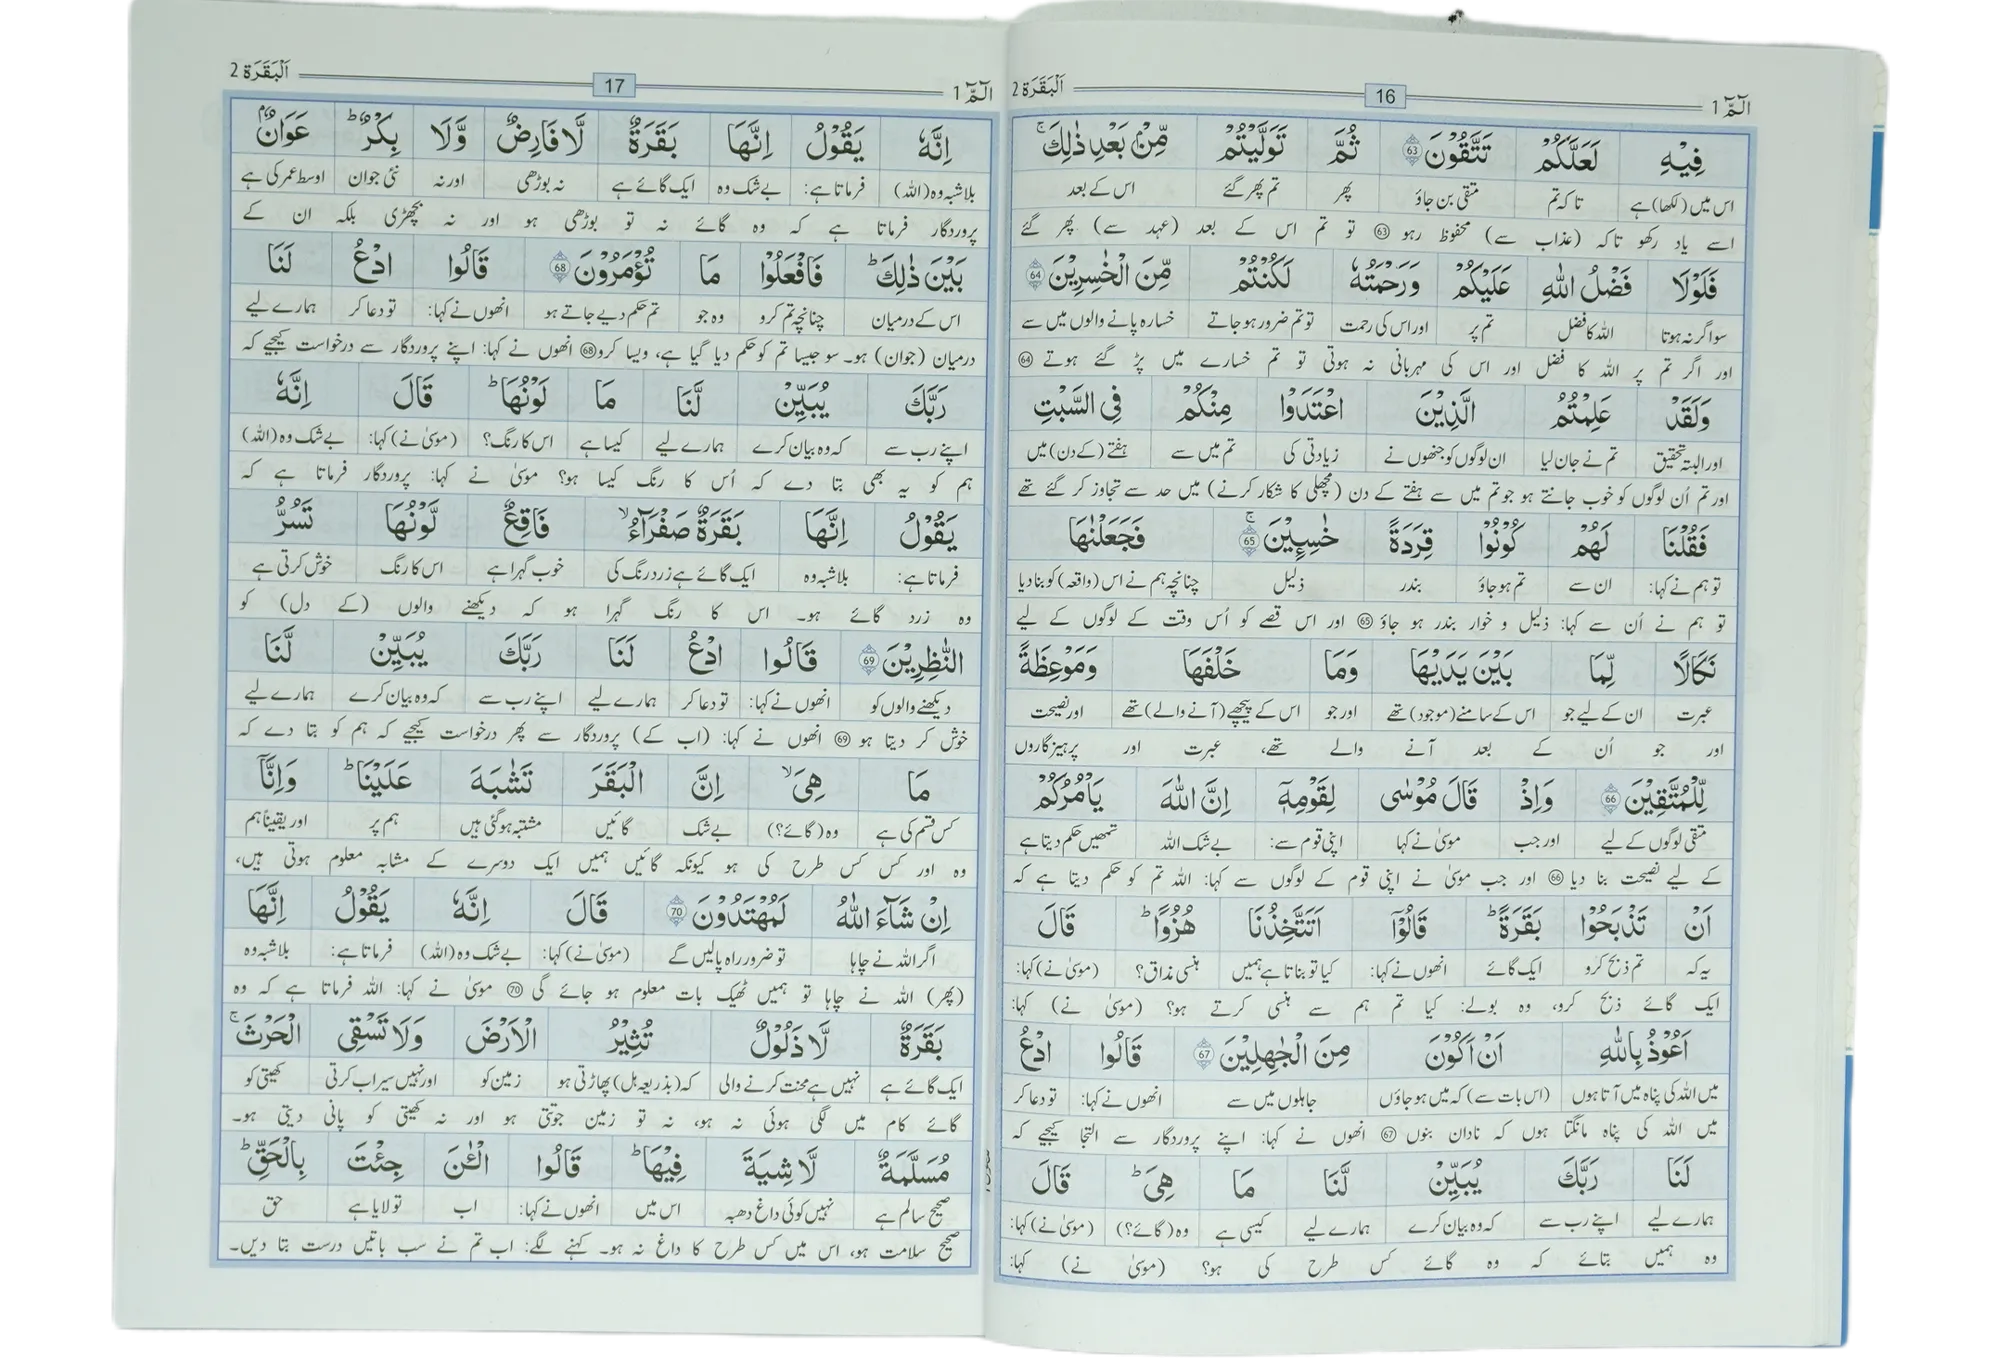 الٓمّٓ 1 16 اَلْبَقَرَة 2
فِيْهِ لَعَلَّكُمْ تَتَّقُوْنَ 63 ثُمَّ تَوَلَّيْتُمْ مِّنْۢ بَعْدِ ذٰلِكَ ۚ
اس میں (لکھا) ہے تا کہ تم متقی بن جاؤ پھر تم پھر گئے اس کے بعد
اسے یاد رکھو تاکہ (عذاب سے) محفوظ رہو 63 تو تم اس کے بعد (عہد سے) پھر گئے
فَلَوْلَا فَضْلُ اللّٰهِ عَلَيْكُمْ وَرَحْمَتُهٗ لَكُنْتُمْ مِّنَ الْخٰسِرِيْنَ 64
سو اگر نہ ہوتا اللہ کا فضل تم پر اور اس کی رحمت تو تم ضرور ہو جاتے خسارہ پانے والوں میں سے
اور اگر تم پر اللہ کا فضل اور اس کی مہربانی نہ ہوتی تو تم خسارے میں پڑ گئے ہوتے 64
وَلَقَدْ عَلِمْتُمُ الَّذِيْنَ اعْتَدَوْا مِنْكُمْ فِى السَّبْتِ
اور البتہ تحقیق تم نے جان لیا ان لوگوں کو جنھوں نے زیادتی کی تم میں سے ہفتے (کے دن) میں
اور تم اُن لوگوں کو خوب جانتے ہو جو تم میں سے ہفتے کے دن (مچھلی کا شکار کرنے) میں حد سے تجاوز کر گئے تھے
فَقُلْنَا لَهُمْ كُوْنُوْا قِرَدَةً خٰسِـِٕيْنَ 65 ۚ فَجَعَلْنٰهَا
تو ہم نے کہا: ان سے تم ہو جاؤ بندر ذلیل چنانچہ ہم نے اس (واقعہ) کو بنا دیا
تو ہم نے اُن سے کہا: ذلیل و خوار بندر ہو جاؤ 65 اور اس قصے کو اُس وقت کے لوگوں کے لیے
نَكَالًا لِّمَا بَيْنَ يَدَيْهَا وَمَا خَلْفَهَا وَمَوْعِظَةً
عبرت ان کے لیے جو اس کے سامنے (موجود) تھے اور جو اس کے پیچھے (آنے والے) تھے اور نصیحت
اور جو اُن کے بعد آنے والے تھے، عبرت اور پرہیزگاروں
لِّلْمُتَّقِيْنَ 66 وَاِذْ قَالَ مُوْسٰى لِقَوْمِهٖۤ اِنَّ اللّٰهَ يَاْمُرُكُمْ
متقی لوگوں کے لیے اور جب موسیٰ نے کہا اپنی قوم سے: بے شک اللہ تمھیں حکم دیتا ہے
کے لیے نصیحت بنا دیا 66 اور جب موسیٰ نے اپنی قوم کے لوگوں سے کہا: اللہ تم کو حکم دیتا ہے کہ
اَنْ تَذْبَحُوْا بَقَرَةً ؕ قَالُوْۤا اَتَتَّخِذُنَا هُزُوًا ؕ قَالَ
یہ کہ تم ذبح کرو ایک گائے انھوں نے کہا: کیا تو بناتا ہے ہمیں ہنسی مذاق؟ (موسیٰ نے) کہا:
ایک گائے ذبح کرو، وہ بولے: کیا تم ہم سے ہنسی کرتے ہو؟ (موسیٰ نے) کہا:
اَعُوْذُ بِاللّٰهِ اَنْ اَكُوْنَ مِنَ الْجٰهِلِيْنَ 67 قَالُوا ادْعُ
میں اللہ کی پناہ میں آتا ہوں (اس بات سے) کہ میں ہو جاؤں جاہلوں میں سے انھوں نے کہا: تو دعا کر
میں اللہ کی پناہ مانگتا ہوں کہ نادان بنوں 67 انھوں نے کہا: اپنے پروردگار سے التجا کیجیے کہ
لَنَا رَبَّكَ يُبَيِّنْ لَّنَا مَا هِىَ ؕ قَالَ
ہمارے لیے اپنے رب سے کہ وہ بیان کرے ہمارے لیے کیسی ہے وہ (گائے؟) (موسیٰ نے) کہا:
وہ ہمیں بتائے کہ وہ گائے کس طرح کی ہو؟ (موسیٰ نے) کہا:
الٓمّٓ 1 17 اَلْبَقَرَة 2
اِنَّهٗ يَقُوْلُ اِنَّهَا بَقَرَةٌ لَّا فَارِضٌ وَّلَا بِكْرٌ ؕ عَوَانٌۢ
بلاشبہ وہ (اللہ) فرماتا ہے: بے شک وہ ایک گائے ہے نہ بوڑھی اور نہ نئی جوان اوسط عمر کی ہے
پروردگار فرماتا ہے کہ وہ گائے نہ تو بوڑھی ہو اور نہ بچھڑی بلکہ ان کے
بَيْنَ ذٰلِكَ ؕ فَافْعَلُوْا مَا تُؤْمَرُوْنَ 68 قَالُوا ادْعُ لَنَا
اس کے درمیان چنانچہ تم کرو وہ جو تم حکم دیے جاتے ہو انھوں نے کہا: تو دعا کر ہمارے لیے
درمیان (جوان) ہو۔ سو جیسا تم کو حکم دیا گیا ہے، ویسا کرو 68 انھوں نے کہا: اپنے پروردگار سے درخواست کیجیے کہ
رَبَّكَ يُبَيِّنْ لَّنَا مَا لَوْنُهَا ؕ قَالَ اِنَّهٗ
اپنے رب سے کہ وہ بیان کرے ہمارے لیے کیسا ہے اس کا رنگ؟ (موسیٰ نے) کہا: بے شک وہ (اللہ)
ہم کو یہ بھی بتا دے کہ اُس کا رنگ کیسا ہو؟ موسیٰ نے کہا: پروردگار فرماتا ہے کہ
يَقُوْلُ اِنَّهَا بَقَرَةٌ صَفْرَآءُ ۙ فَاقِعٌ لَّوْنُهَا تَسُرُّ
فرماتا ہے: بلاشبہ وہ ایک گائے ہے زرد رنگ کی خوب گہرا ہے اس کا رنگ خوش کرتی ہے
وہ زرد گائے ہو۔ اس کا رنگ گہرا ہو کہ دیکھنے والوں (کے دل) کو
النّٰظِرِيْنَ 69 قَالُوا ادْعُ لَنَا رَبَّكَ يُبَيِّنْ لَّنَا
دیکھنے والوں کو انھوں نے کہا: تو دعا کر ہمارے لیے اپنے رب سے کہ وہ بیان کرے ہمارے لیے
خوش کر دیتا ہو 69 انھوں نے کہا: (اب کے) پروردگار سے پھر درخواست کیجیے کہ ہم کو بتا دے کہ
مَا هِىَ ۙ اِنَّ الْبَقَرَ تَشٰبَهَ عَلَيْنَا ؕ وَاِنَّاۤ
کس قسم کی ہے وہ (گائے؟) بے شک گائیں مشتبہ ہو گئی ہیں ہم پر اور یقیناً ہم
وہ اور کس کس طرح کی ہو کیونکہ گائیں ہمیں ایک دوسرے کے مشابہ معلوم ہوتی ہیں،
اِنْ شَآءَ اللّٰهُ لَمُهْتَدُوْنَ 70 قَالَ اِنَّهٗ يَقُوْلُ اِنَّهَا
اگر اللہ نے چاہا تو ضرور راہ پا لیں گے (موسیٰ نے) کہا: بے شک وہ (اللہ) فرماتا ہے: بلاشبہ وہ
(پھر) اللہ نے چاہا تو ہمیں ٹھیک بات معلوم ہو جائے گی 70 موسیٰ نے کہا: اللہ فرماتا ہے کہ وہ
بَقَرَةٌ لَّا ذَلُوْلٌ تُثِيْرُ الْاَرْضَ وَلَا تَسْقِى الْحَرْثَ ۚ
ایک گائے ہے نہیں ہے محنت کرنے والی کہ (بذریعہ ہل) پھاڑتی ہو زمین کو اور نہیں سیراب کرتی کھیتی کو
گائے کام میں لگی ہوئی نہ ہو، نہ تو زمین جوتتی ہو اور نہ کھیتی کو پانی دیتی ہو۔
مُسَلَّمَةٌ لَّا شِيَةَ فِيْهَا ؕ قَالُوا الْـٰٔنَ جِئْتَ بِالْحَقِّ ؕ
صحیح سالم ہے نہیں کوئی داغ دھبہ اس میں انھوں نے کہا: اب تو لایا ہے حق
صحیح سلامت ہو، اس میں کس طرح کا داغ نہ ہو۔ کہنے لگے: اب تم نے سب باتیں درست بتا دیں۔